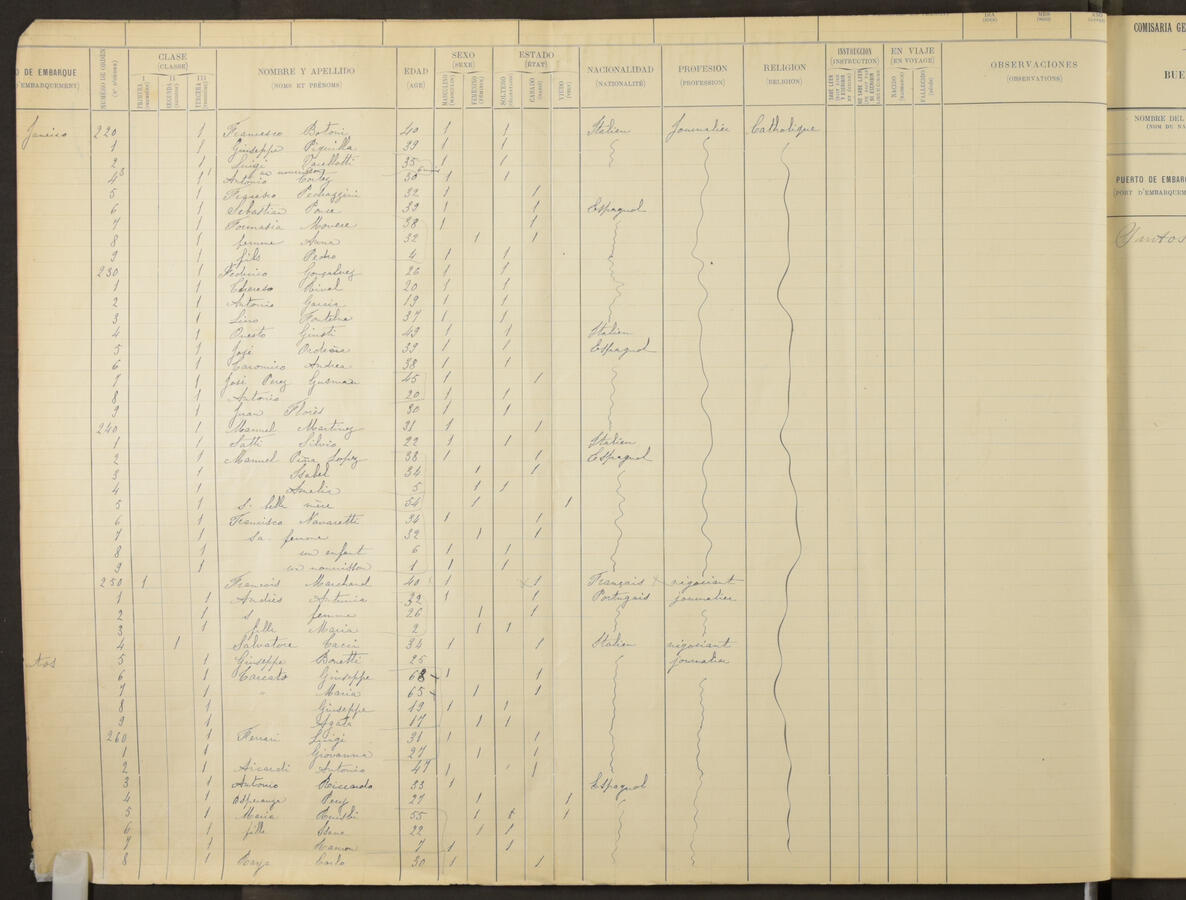 DIA MES AÑO
O DE EMBARQUE
D'EMBARQUEMENT)
NUMÉRO DE ORDEN (Nº D'ORDRE)
CLASE
(CLASSE)
I II III
PRIMERA (PREMIÈRE) SEGUNDA (SECONDE) TERCERA (TROISIÈME)
NOMBRE Y APELLIDO
(NOMS ET PRÉNOMS)
EDAD
(AGE)
SEXO
(SEXE)
MASCULINO (MASCULIN) FEMENINO (FÉMININ)
ESTADO
(ÉTAT)
SOLTERO (CÉLIBATAIRE) CASADO (MARIÉ) VIUDO (VEUF)
NACIONALIDAD
(NATIONALITÉ)
PROFESION
(PROFESSION)
RELIGION
(RELIGION)
INSTRUCCION
(INSTRUCTION)
EN VIAJE
(EN VOYAGE)
NACIDO FALLECIDO
OBSERVACIONES
(OBSERVATIONS)
Janeiro 220 1 Francesco Botoni 40 1 1 Italien Journalier Catholique
1 1 Giuseppe 39 1 1
2 1 Luigi 35 1 1
un nourrisson
4 1 Antonio Cortez 30 1 1
5 1 32 1 1
6 1 Sebastian Ponce 39 1 1 Espagnol
7 1 38 1 1
8 1 femme Anna 32 1 1
9 1 fils Pedro 4 1 1
230 1 Federico Gonzalvez 26 1 1
1 1 20 1 1
2 1 Antonio Garcia 19 1 1
3 1 Lino 37 1 1
4 1 Oresto Giusti 49 1 1 Italien
5 1 José 39 1 1 Espagnol
6 1 Andrea 38 1 1
7 1 José Perez Gusman 45 1 1
8 1 Antonio 20 1 1
9 1 Juan Flores 30 1 1
240 1 Manuel Martinez 31 1 1
1 1 Satti Silvio 22 1 1 Italien
2 1 Manuel Piña Lopez 38 1 1 Espagnol
3 1 Isabel 34 1 1
4 1 Amelia 5 1 1
5 1 s. belle mère 54 1 1
6 1 Francisco Navaretti 34 1 1
7 1 sa femme 32 1 1
8 1 un enfant 6 1 1
9 1 un nourrisson 1 1 1
250 1 François Marchand 40 1 1 Français négociant
1 1 Andrés Antunia 32 1 1 Portugais journalier
2 1 s femme 26 1 1
3 1 fille Maria 2 1 1
4 1 Salvatore 34 1 1 Italien négociant
ntos 5 1 Giuseppe Bonetti 25 journalier
6 1 Carcato Giuseppe 68 1 1
7 1 " Maria 65 1 1
8 1 Giuseppe 19 1 1
9 1 Agata 17 1 1
260 1 Ferrari Luigi 31 1 1
1 1 Giovanna 27 1 1
2 1 Aicardi Antonio 47 1 1
3 1 Antonio Riccardo 33 1 Espagnol
4 1 Esperanza Perez 27 1 1
5 1 Maria 55 1 1
6 1 fille 22 1 1
7 1 Ramon 7 1 1
8 1 Carlo 30 1 1
COMISARIA GE
BUE
NOMBRE DEL
(NOM DU NA
PUERTO DE EMBARQ
(PORT D'EMBARQUEM
Santos